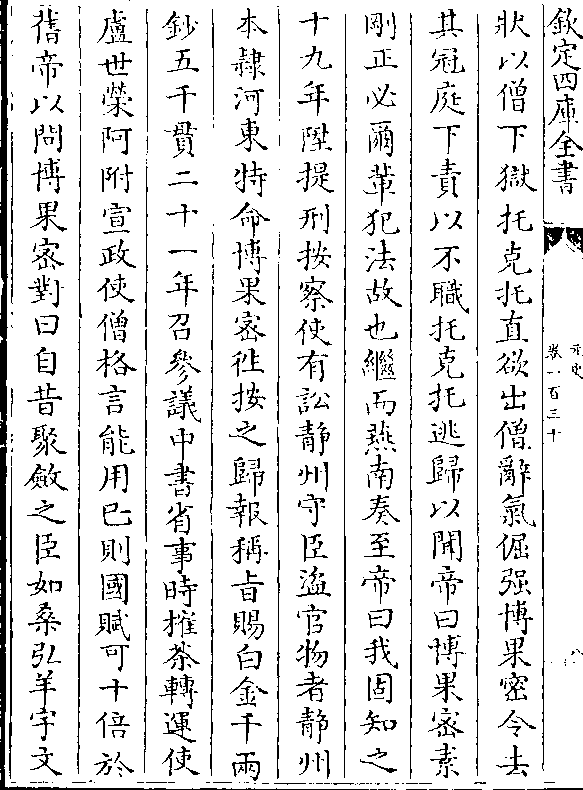 欽定四庫全書
元史
卷一百三十
八
狀以僧下獄托克托直欲出僧辭氣倔强博果密令去
其冠庭下責以不職托克托逃歸以聞帝曰博果密素
剛正必爾輩犯法故也繼而燕南奏至帝曰我固知之
十九年陞提刑按察使有訟靜州守臣盜官物者靜州
本隷河東特命博果密徃按之歸報稱㫖賜白金千兩
鈔五千貫二十一年召參議中書省事時搉茶轉運使
盧世榮阿附宣政使僧格言能用已則國賦可十倍於
舊帝以問博果密對曰自昔聚斂之臣如桑弘羊宇文